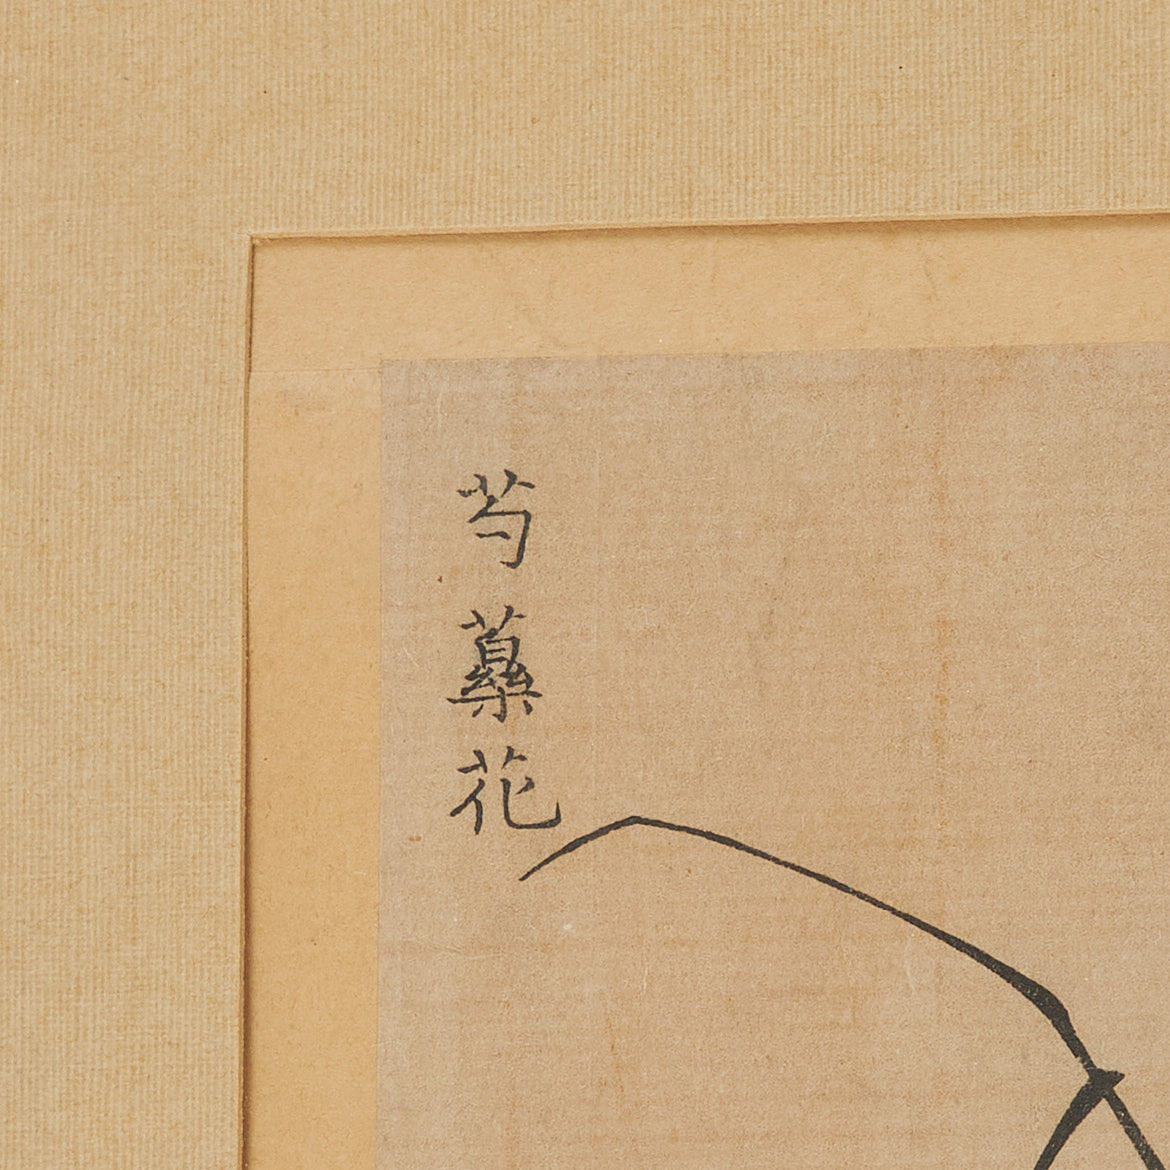 芍藥花